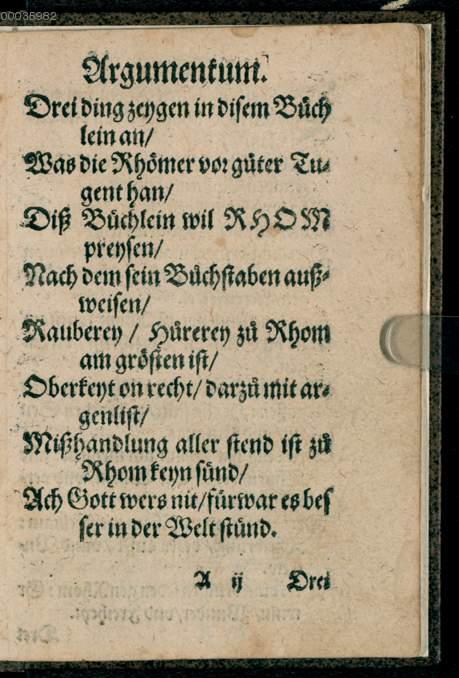 00035982
Argumentum.
Drei ding zeygen in disem Büch
lein an/
Was die Rhömer vor güter Tu-
gent han/
Diß Büchlein wil RHOM
preysen/
Nach dem sein Büchstaben auß-
weisen/
Rauberey / Hürerey zů Rhom
am grösten ist/
Oberkeyt on recht/ darzů mit ar-
genlist/
Mißhandlung aller stend ist zů
Rhom keyn sünd/
Ach Gott wers nit/ fürwar es bes
ser in der Welt stünd.
A ij Drei